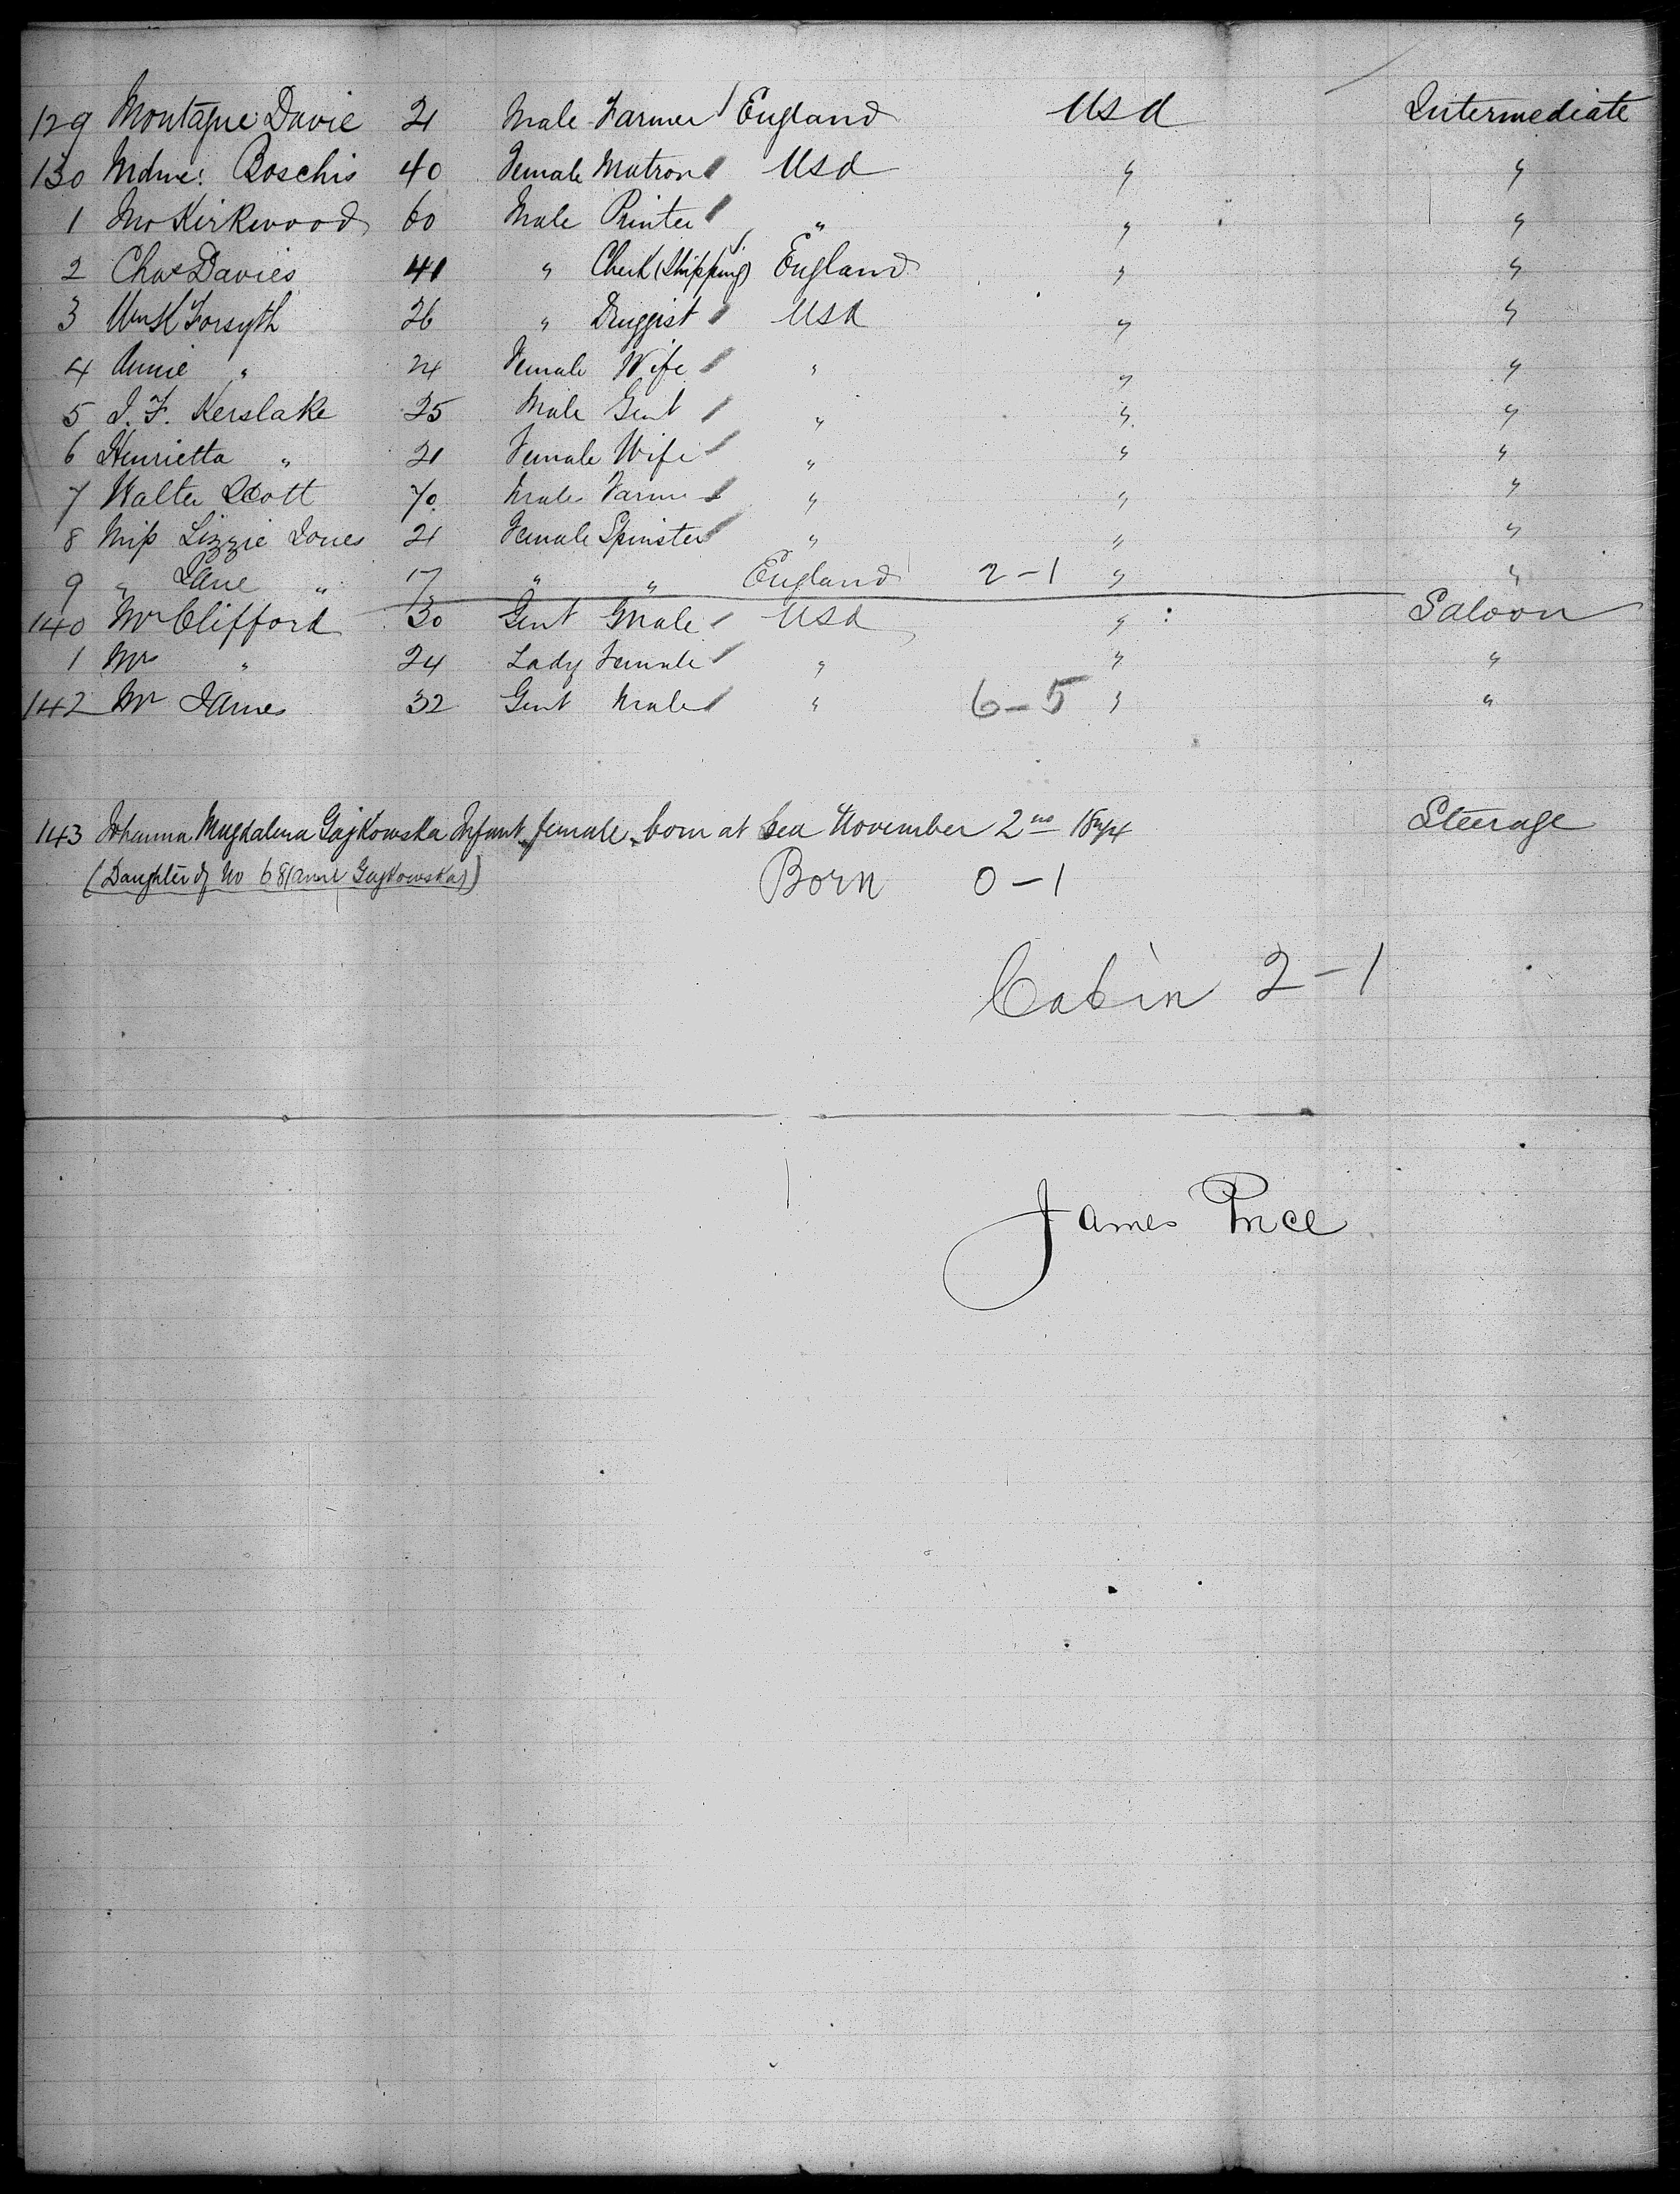 129 Montague Davie 21 Male Farmer England Usa Intermediate
130 Mdme: Boschis 40 Female Matron Usa " "
1 Kirkwood 60 Male Printer " " "
2 Chas Davies 41 " Clerk (Shipping) England " "
3 Wm Forsyth 26 " Druggist Usa " "
4 Annie " 24 Female Wife " " "
5 J. F. Kerslake 25 Male Gent " " "
6 Henrietta " 21 Female Wife " " "
7 Walter Scott 70 Male Farmer " " "
8 Miss Lizzie Jones 21 Female Spinster " " "
9 " Jane " 17 " " England 2-1 " "
140 Mr Clifford 30 Gent Male Usa " Saloon
1 Mrs " 24 Lady Female " " "
142 Mr James 32 Gent Male " 6-5 " "
143 Johanna Magdalena Gajkowska Infant female born at Sea November 2nd Steerage
(Daughter of No 68 Gajkowska)
Born 0-1
Cabin 2-1
James Price